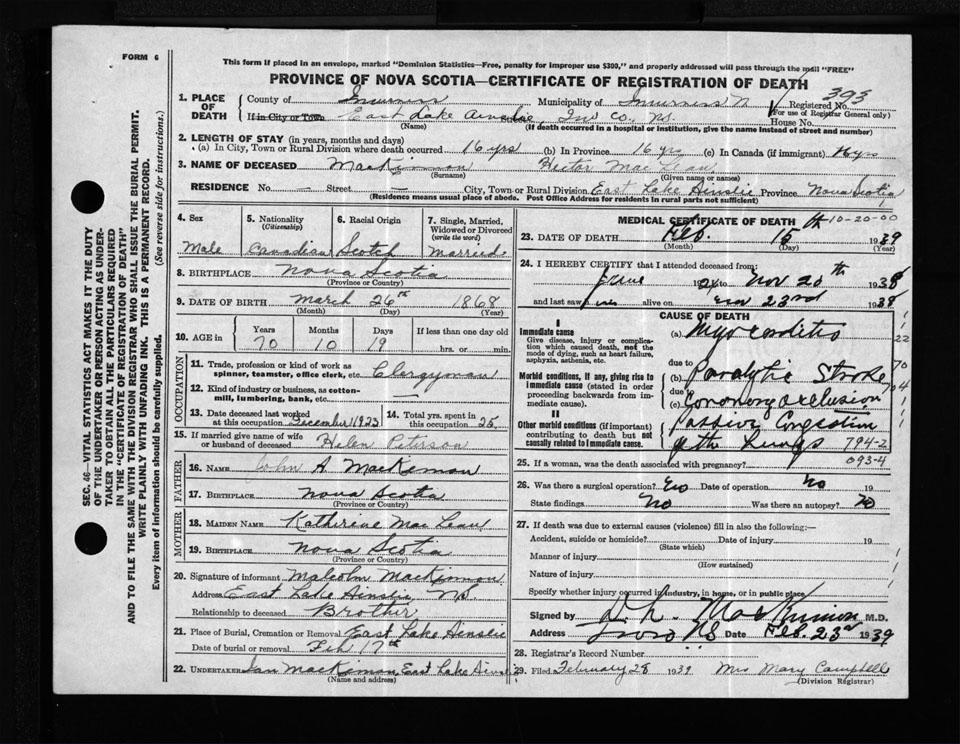 FORM 6
This form if placed in an envelope, marked "Dominion Statistics—Free, penalty for improper use $300," and properly addressed will pass through the mail "FREE"
PROVINCE OF NOVA SCOTIA—CERTIFICATE OF REGISTRATION OF DEATH
1. PLACE OF DEATH County of Inverness Municipality of Inverness N Registered No. 393
(For use of Registrar General only)
If in City or Town East Lake Ainslie, Inv Co., N.S. House No.
(Name) (If death occurred in a hospital or institution, give the name instead of street and number)
2. LENGTH OF STAY (in years, months and days)
(a) In City, Town or Rural Division where death occurred 16 yrs (b) In Province 16 yrs (c) In Canada (if immigrant) 16 yrs
3. NAME OF DECEASED MacKinnon Hector MacLean
(Surname) (Given name or names)
RESIDENCE No. — Street — City, Town or Rural Division East Lake Ainslie Province Nova Scotia
(Residence means usual place of abode. Post Office Address for residents in rural parts not sufficient)
4. Sex Male
5. Nationality (Citizenship) Canadian
6. Racial Origin Scotch
7. Single, Married, Widowed or Divorced (write the word) Married
8. BIRTHPLACE Nova Scotia
(Province or Country)
9. DATE OF BIRTH March 26th 1868
(Month) (Day) (Year)
10. AGE in Years 70 Months 10 Days 19 If less than one day old hrs. or min.
OCCUPATION
11. Trade, profession or kind of work as spinner, teamster, office clerk, etc. Clergyman
12. Kind of industry or business, as cotton-mill, lumbering, bank, etc. —
13. Date deceased last worked at this occupation December 1923
14. Total yrs. spent in this occupation 25
15. If married give name of wife or husband of deceased Helen
FATHER
16. NAME John A. MacKinnon
17. BIRTHPLACE Nova Scotia
(Province or Country)
MOTHER
18. MAIDEN NAME Katherine MacLean
19. BIRTHPLACE Nova Scotia
(Province or Country)
20. Signature of informant Malcolm MacKinnon
Address East Lake Ainslie, N.S.
Relationship to deceased Brother
21. Place of Burial, Cremation or Removal East Lake Ainslie
Date of burial or removal Feb 17th
22. UNDERTAKER Ian MacKinnon, East Lake Ainslie
(Name and address)
MEDICAL CERTIFICATE OF DEATH 10-20-00
23. DATE OF DEATH Feb. 15th 1939
(Month) (Day) (Year)
24. I HEREBY CERTIFY that I attended deceased from:
June to Nov 20th 1938
and last saw alive on Nov 23rd 1938
CAUSE OF DEATH
I
Immediate cause (a) Myocarditis
Give disease, injury or complication which caused death, not the mode of dying, such as heart failure, asphyxia, asthenia, etc.
due to
Morbid conditions, if any, giving rise to immediate cause (stated in order proceeding backwards from immediate cause). (b) Paralytic Stroke
due to
(c) Coronary occlusion
II
Other morbid conditions (if important) contributing to death but not causally related to immediate cause. Passive Congestion
of the Lungs 794-2
093-4
25. If a woman, was the death associated with pregnancy?
26. Was there a surgical operation? No Date of operation No 19
State findings No Was there an autopsy? No
27. If death was due to external causes (violence) fill in also the following:—
Accident, suicide or homicide? Date of injury 19
(State which)
Manner of injury
(How sustained)
Nature of injury
Specify whether injury occurred in industry, in home, or in public place
Signed by D. L. MacKinnon M.D.
Address Truro N.S. Date Feb. 23rd 1939
28. Registrar's Record Number
29. Filed February 28 1939 Mrs Mary Campbell
(Division Registrar)
SEC. 46—VITAL STATISTICS ACT MAKES IT THE DUTY
OF THE UNDERTAKER OR PERSON ACTING AS UNDER-
TAKER TO OBTAIN ALL THE PARTICULARS REQUIRED
IN THE "CERTIFICATE OF REGISTRATION OF DEATH"
AND TO FILE THE SAME WITH THE DIVISION REGISTRAR WHO SHALL ISSUE THE BURIAL PERMIT.
WRITE PLAINLY WITH UNFADING INK. THIS IS A PERMANENT RECORD.
Every item of information should be carefully supplied. (See reverse side for instructions.)